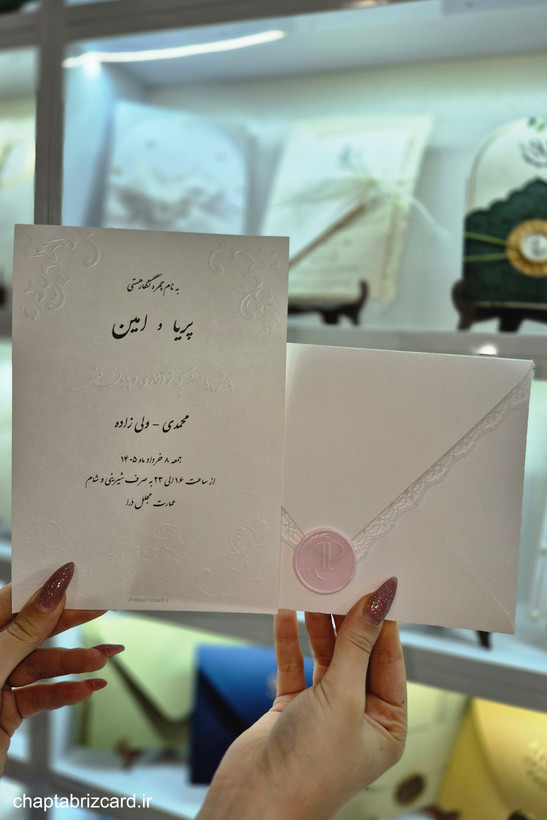 به نام چهره نگار هستی
پریا و امین
محمدی - ولی زاده
جمعه ۸ خرداد ماه ۱۴۰۵
از ساعت ۱۶ الی ۲۳ به صرف شیرینی و شام
عمارت مجلل دُرا
chaptabrizcard.ir
chaptabrizcard.ir